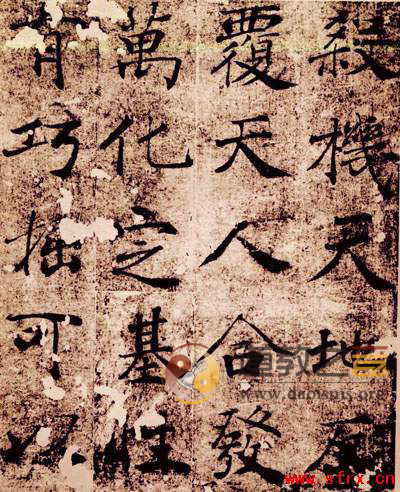 殺機天地反
覆天人合發
萬化定基性
有巧拙可以
道教之音
www.daoisms.org
www.sfrx.cn